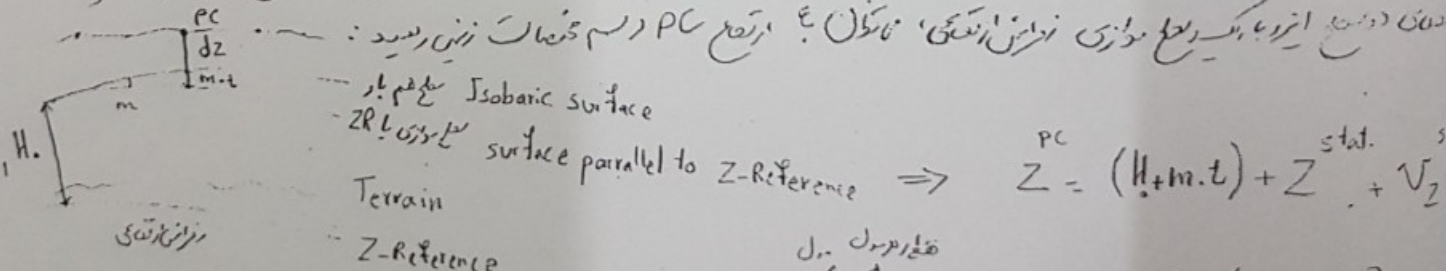 ایزوبار یک سطح موازی رفرانس ارتفاعی، می‌توان به ارتفاع PC در سیستم مختصات زمینی رسید :
PC
dz
m.t
m
H.
رفرانس ارتفاعی
سطح هم بار Isobaric surface
سطح موازی با ZR surface parrallel to Z-Reference ⇒ Z^PC = (H.+m.t) + Z^stat. + V_Z
Terrain
Z-Reference